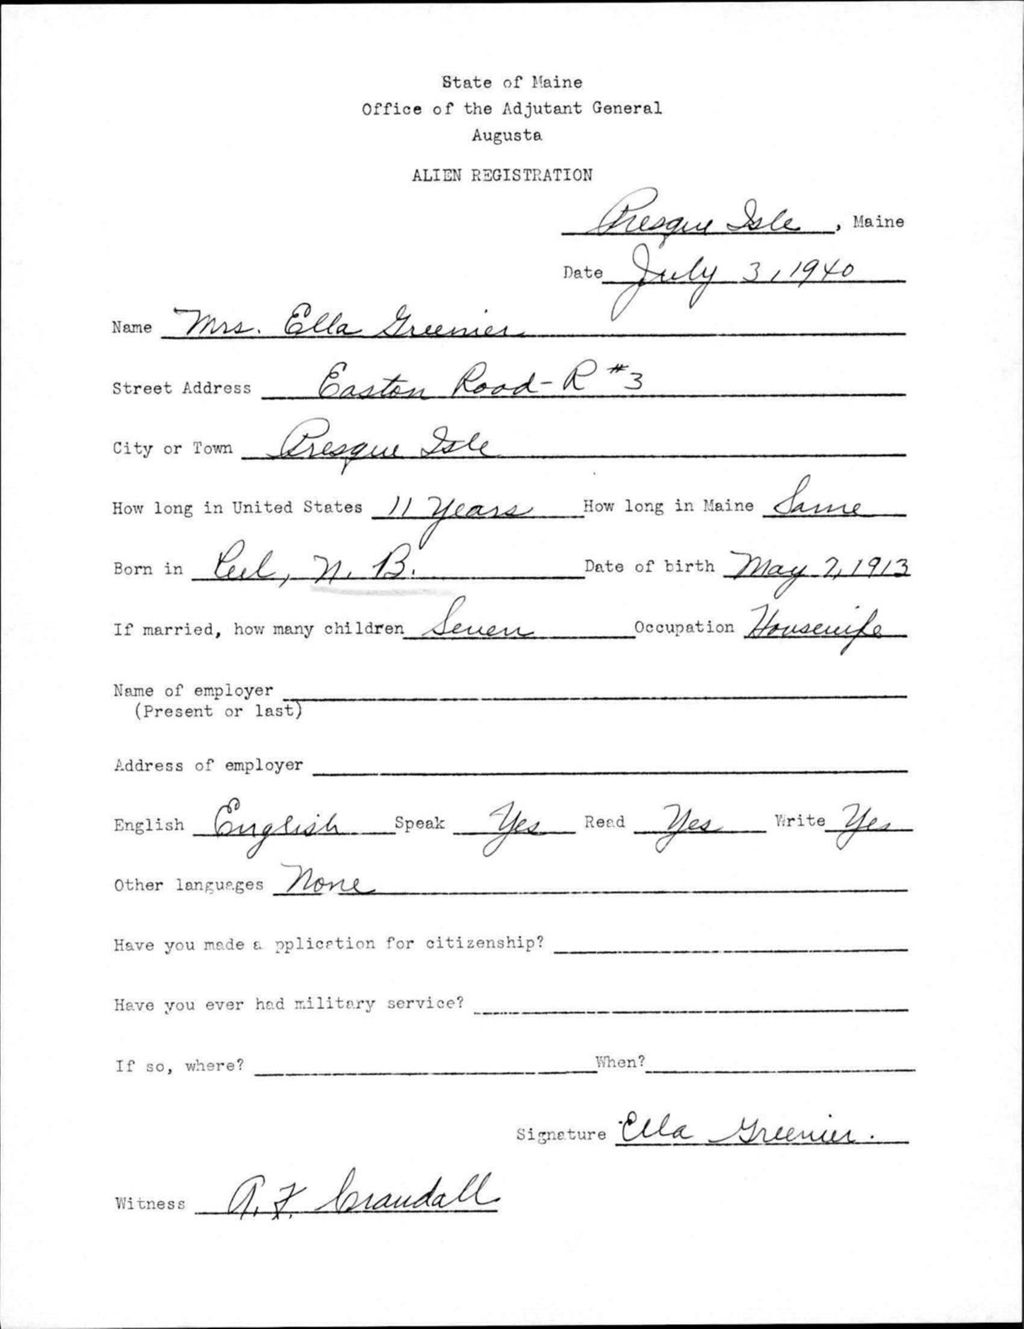 State of Maine
Office of the Adjutant General
Augusta
ALIEN REGISTRATION
Presque Isle, Maine
Date July 3, 1940
Name Mrs. Ella Greenier
Street Address Easton Road - R #3
City or Town Presque Isle
How long in United States 11 Years How long in Maine Same
Born in Peel, N. B. Date of birth May 7, 1913
If married, how many children Seven Occupation Housewife
Name of employer
(Present or last)
Address of employer
English English Speak Yes Read Yes Write Yes
Other languages None
Have you made a pplication for citizenship?
Have you ever had military service?
If so, where? When?
Signature Ella Greenier.
Witness A. F. Crandall